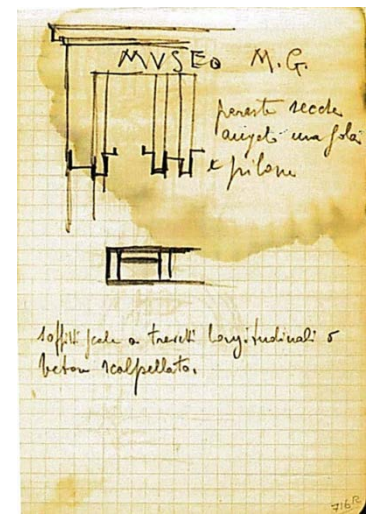 MVSEO M.G.
secche
angoli una
e piloni
soffitti scale a travetti longitudinali o
beton scalpellato.
716R